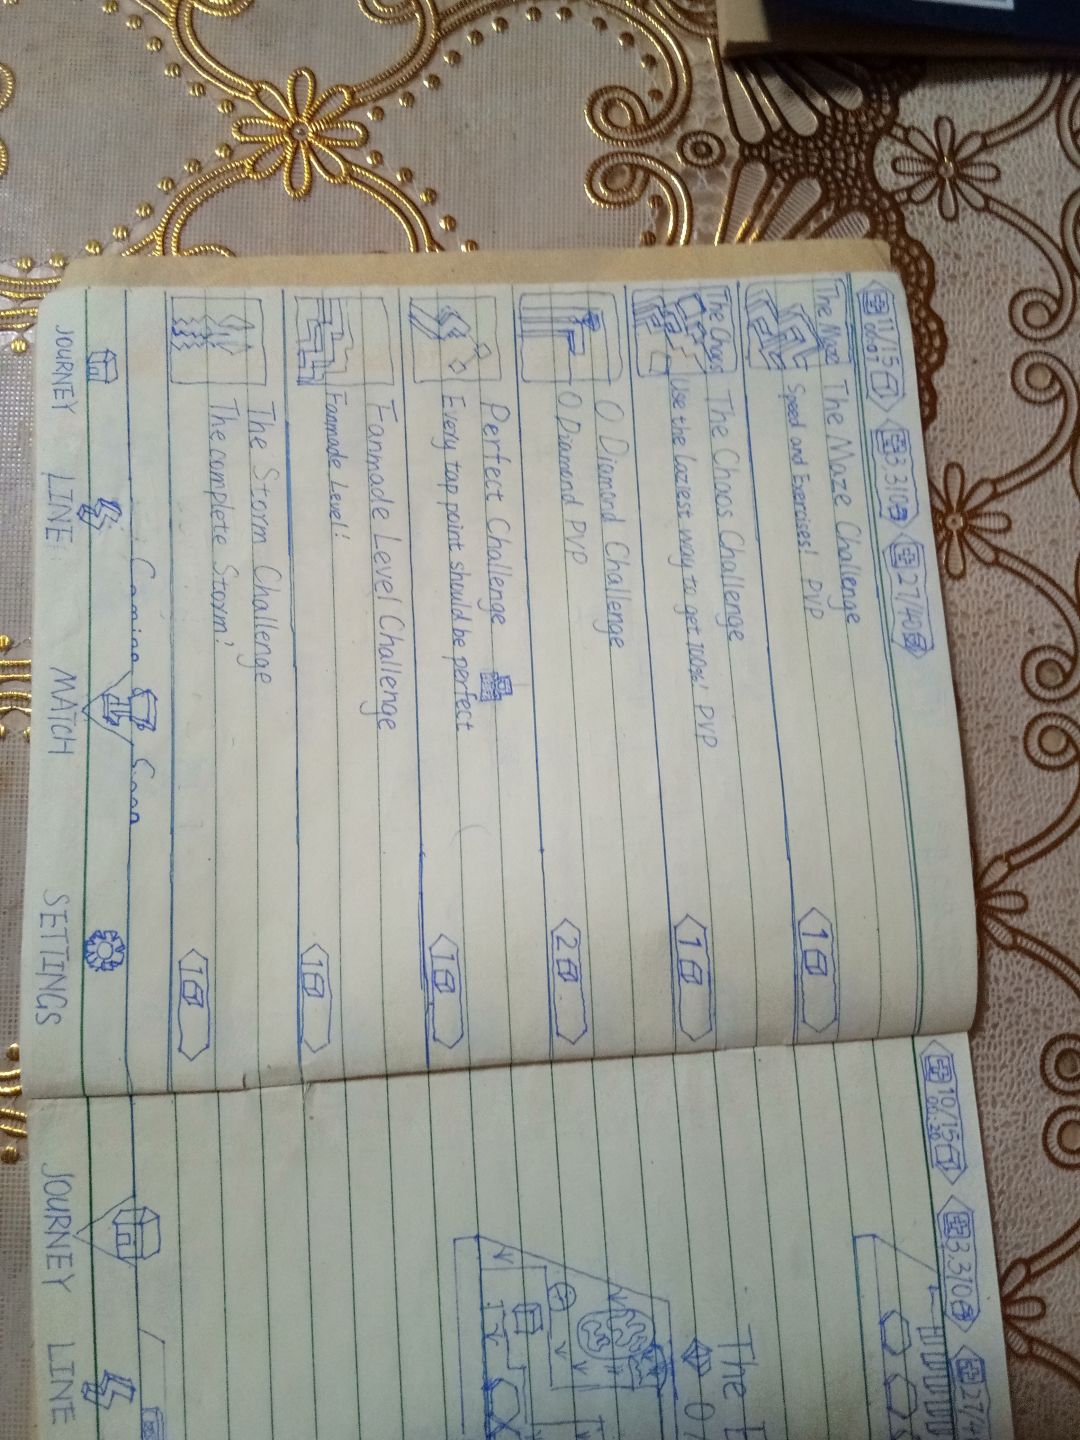 11/15
00:07
3,310
27/40
The Maze
The Maze Challenge
Speed and Exercises! PVP
1
The Chaos
The Chaos Challenge
Use the laziest way to get 100%! PVP
1
0 Diamond Challenge
0 Diamond PVP
2
Perfect Challenge
Every tap point should be perfect
1
Fanmade Level Challenge
Fanmade Level!
1
The Storm Challenge
The complete Storm!
1
Coming Soon
JOURNEY LINE MATCH SETTINGS
10/15
00:20
3,310
27/4
The
0/
JOURNEY LINE